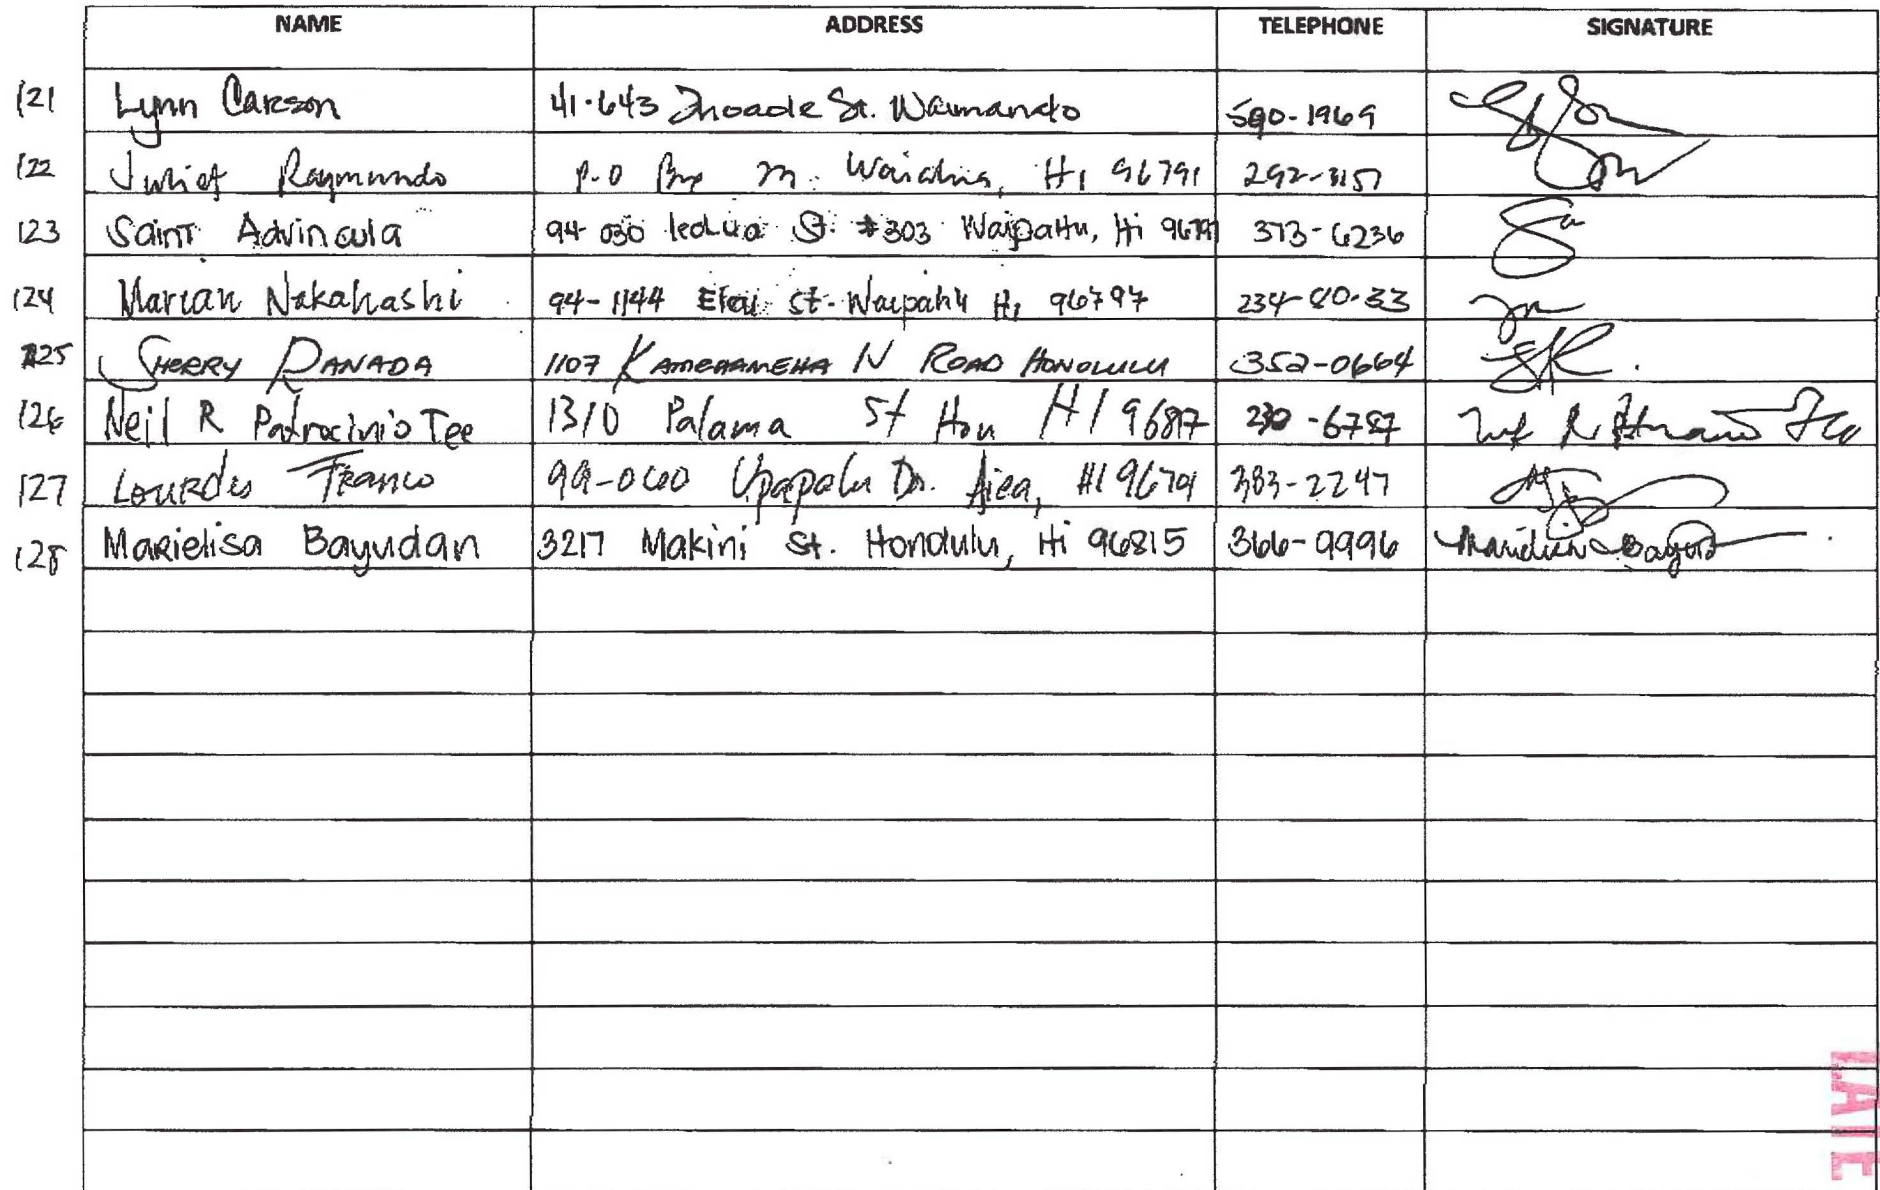 NAME ADDRESS TELEPHONE SIGNATURE
121 Lynn Carson 41-643 Inoaole St. Waimanalo 590-1969
122 Juliet Raymundo P.O Box M. Waialua, HI 96791 292-3157
123 Saint Advincula 94-030 St. #303 Waipahu, Hi 373-6236
124 Marian Nakahashi 94-1144 St. Waipahu Hi 96797 234-80-33
125 SHERRY RANADA 1107 KAMEHAMEHA N ROAD HONOLULU 352-0664
126 Neil R Patrocinio Tee 1310 Palama St Hon HI 96817 -6787
127 Lourdes Franco 99-060 Upapalu Dr. Aiea, HI 96701 383-2247
128 Marielisa Bayudan 3217 Makini St. Honolulu, Hi 96815 366-9996
LATE